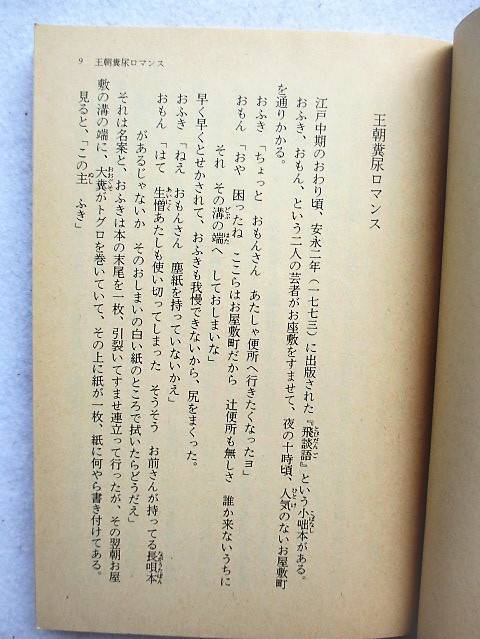 9 王朝糞尿ロマンス
王朝糞尿ロマンス
江戸中期のおわり頃、安永二年（一七七三）に出版された『飛談語』という小咄本がある。
おふき、おもん、という二人の芸者がお座敷をすませて、夜の十時頃、人気のないお屋敷町
を通りかかる。
おふき「ちょっと おもんさん あたしゃ便所へ行きたくなったヨ」
おもん「おや 困ったね ここらはお屋敷町だから 辻便所も無しさ 誰か来ないうちに
それ その溝の端へ しておしまいな」
早く早くとせかされて、おふきも我慢できないから、尻をまくった。
おふき「ねえ おもんさん 塵紙を持っていないかえ」
おもん「はて 生憎あたしも使い切ってしまった そうそう お前さんが持ってる長唄本
があるじゃないか そのおしまいの白い紙のところで拭いたらどうだえ」
それは名案と、おふきは本の末尾を一枚、引裂いてすませ連立って行ったが、その翌朝お屋
敷の溝の端に、大糞がトグロを巻いていて、その上に紙が一枚、紙に何やら書き付けてある。
見ると、「この主 ふき」